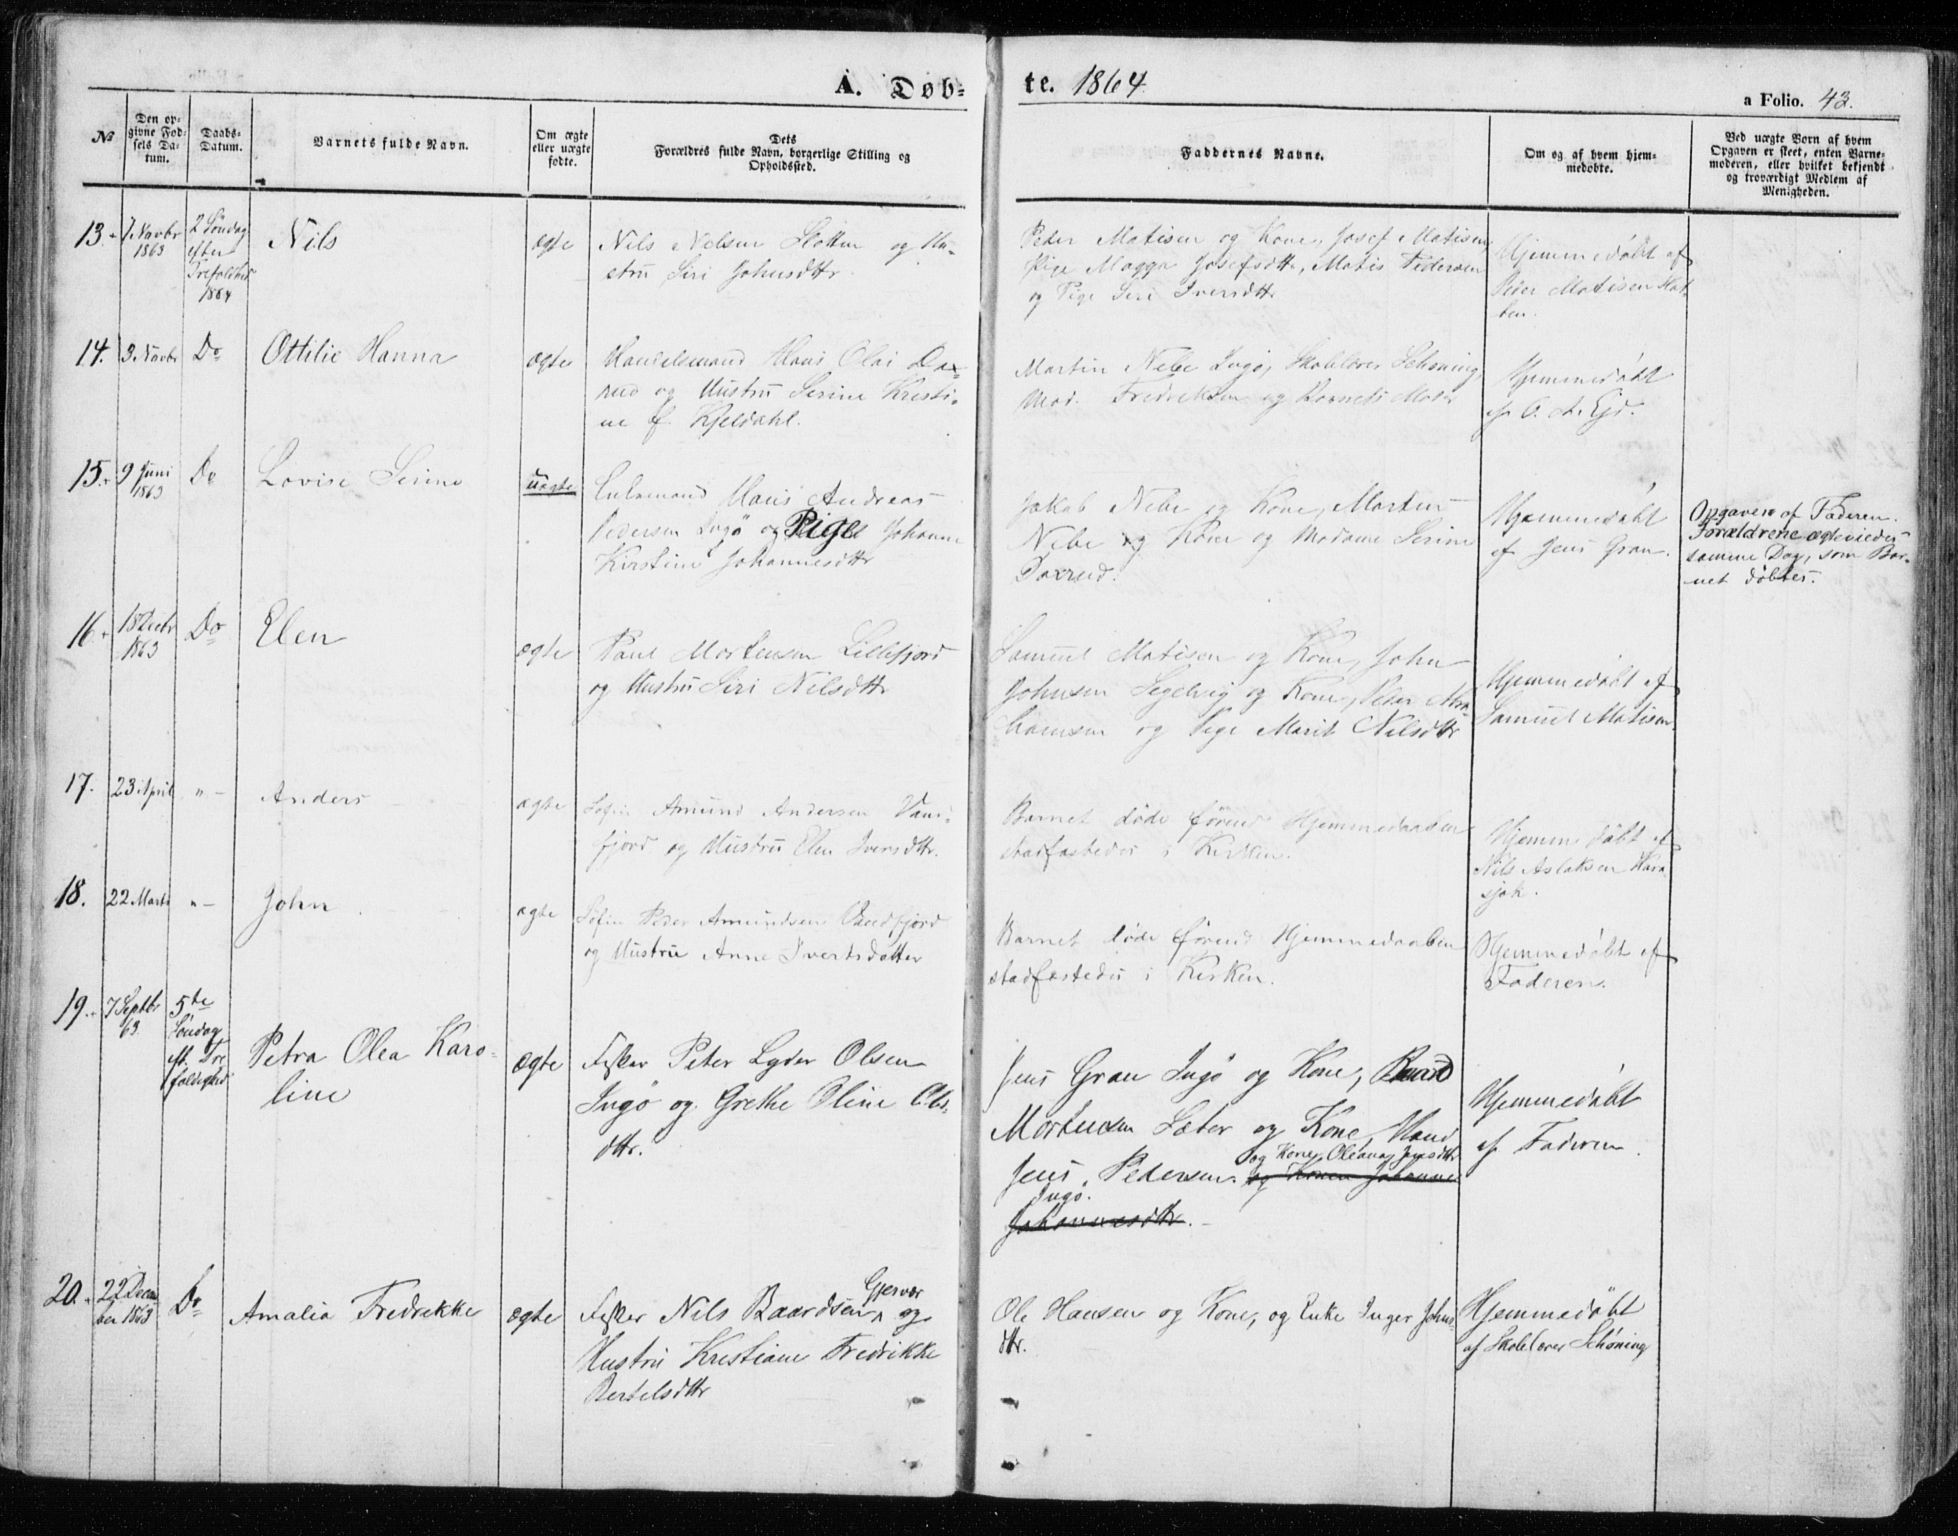 A. Døb-te. 1864.
a Folio. 43.
№
Den op-
givne Fød-
sels Da-
tum.
Daabs-
Datum.
Barnets fulde Navn.
Om ægte
eller uægte
fødte.
Dets
Forældres fulde Navn, borgerlige Stilling og
Opholdssted.
Faddernes Navne.
Om og af hvem hjem-
medøbte.
Ved uægte Børn af hvem
Opgaven er skeet, enten Barne-
moderen, eller hvilket bekjendt
og troværdigt Medlem af
Menigheden.
13.
7 Novbr
1863
2 Søndag
efter
Trefoldhed
1864
Nils
ægte
Nils Nilsen og Hu-
stru Siri Johnsdttr.
Peder Matisen og Kone, Josef Matisen
Pige Magga Josefsdttr, Matis Pedersen
og Pige Siri Iversdttr
Hjemmedøbt af
Peder Matisen
14.
3 Novbr
Do
Ottilie Hanna
ægte
Handelsmand Hans Olai Dax-
rud og Hustru Serine Kristi-
ne f. Kjeldahl.
Martin Nebe Ingø, Skolelærer Schøning,
Mad. Fredriksen og Barnets Moder
Hjemmedøbt
af
15.
9 Juni
1863
Do
Lovise Serine
uægte
Hans Andreas
Pedersen Ingø og Pige Johanne
Kirstine Johannesdttr
Jakob Nebe og Kone, Morten
Nebe og Kone og Madame Serine
Daxrud.
Hjemmedøbt
af Jens Gran.
Opgaven af Faderen.
Forældrene ægteviedes
samme Dag, som Bar-
net døbtes.
16.
18 Decbr
1863
Do
Elen
ægte
Paul Mortensen Lillefjord
og Hustru Siri Nilsdttr
Samuel Matisen og Kone, John
Johnsen Segelvig og Kone, Peder Abra-
hamsen og Pige Marit Nilsdttr
Hjemmedøbt af
Samuel Matisen.
17.
23 April
" –
Anders
ægte
Søfin Amund Andersen
fjord og Hustru Elen Iversdttr.
Barnet døde førend Hjemmedaaben
stadfæstedes i Kirken.
Hjemmedøbt af
Nils Aslaksen Kara-
sjok.
18.
22 Marts
" –
John
ægte
Søfin Peder Amundsen
og Hustru Anne Ivertsdatter
Barnet døde førend Hjemmedaaben
stadfæstedes i Kirken.
Hjemmedøbt af
Faderen.
19.
7 Septbr
63.
5te
Søndag
eft. Tre
foldighed
Petra Olea Karo-
line
ægte
Fisker Peter Lyder Olsen
Ingø og Grethe Oline Ols-
dttr.
Jens Gran Ingø og Kone, Baard
Mortensen Sæter og Kone,
og Kone Oleana Jensdttr
Jens Pedersen og Konen Johanne
Ingø.
Johannesdttr.
Hjemmedøbt
af Faderen.
20.
22 Decem
ber 1863
Do
Amalia Fredrikke
ægte
Gjesvær
Fisker Nils Baardsen og
Hustru Kristiane Fredrikke
Bertelsdttr
Ole Hansen og Kone, og Enke Inger Johns-
dttr.
Hjemmedøbt
af Skolelærer Schøning